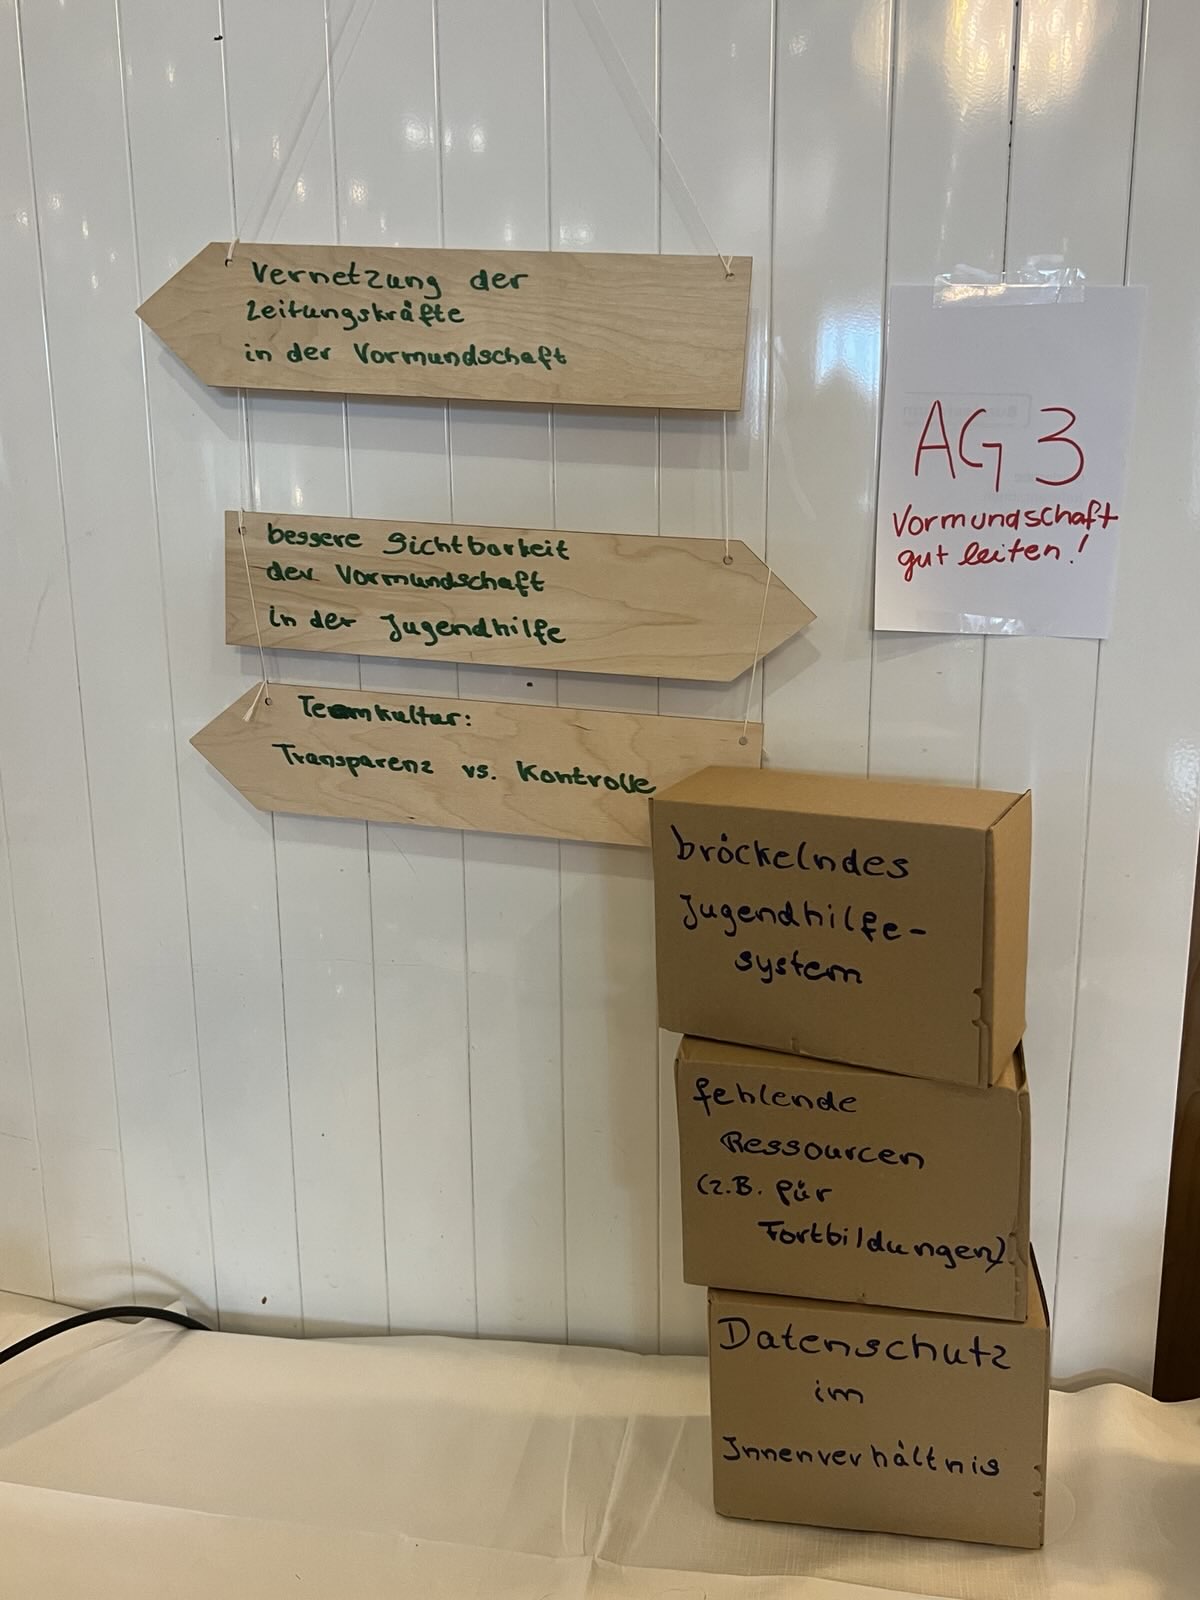 Vernetzung der
Leitungskräfte
in der Vormundschaft
bessere Sichtbarkeit
der Vormundschaft
in der Jugendhilfe
Teamkultur:
Transparenz vs. Kontrolle
AG 3
Vormundschaft
gut leiten!
bröckelndes
Jugendhilfe-
system
fehlende
Ressourcen
(z.B. für
Fortbildungen)
Datenschutz
im
Innenverhältnis